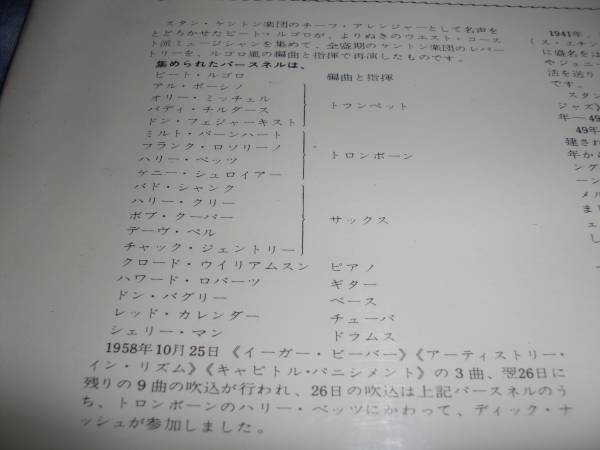 スタン・ケントン楽団のチーフ・アレンジャーとして名声を
とどろかせたピート・ルゴロが、よりぬきのウエスト・コース
ト派ミュージシャンを集めて、全盛期のケントン楽団のレパー
トリーを、ルゴロ風の編曲と指揮で再演したものです。
集められたパースネルは、
ピート・ルゴロ 編曲と指揮
アル・ポーシノ
オリー・ミッチェル
バディ・チルダース トランペット
ドン・フェジャーキスト
ミルト・バーンハート
フランク・ロソリーノ
ハリー・ベッツ トロンボーン
ケニー・シュロイアー
バド・シャンク
ハリー・クリー
ボブ・クーパー サックス
デーヴ・ペル
チャック・ジェントリー
クロード・ウイリアムスン ピアノ
ハワード・ロバーツ ギター
ドン・バグリー ベース
レッド・カレンダー チューバ
シェリー・マン ドラムス
1958年10月25日《イーガー・ビーバー》《アーティストリー・
イン・リズム》《キャピトル・パニシメント》の3曲、翌26日に
残りの9曲の吹込が行われ、26日の吹込は上記パースネルのう
ち、トロンボーンのハリー・ベッツにかわって、ディック・ナ
ッシュが参加しました。
1941年、
ス・エチン
に盛名をは
やジョニー
活を送り
です。
スタン
ジャズ》
年—49
49年
建され
年から
ング
ーン
メル
まし
ェ
し